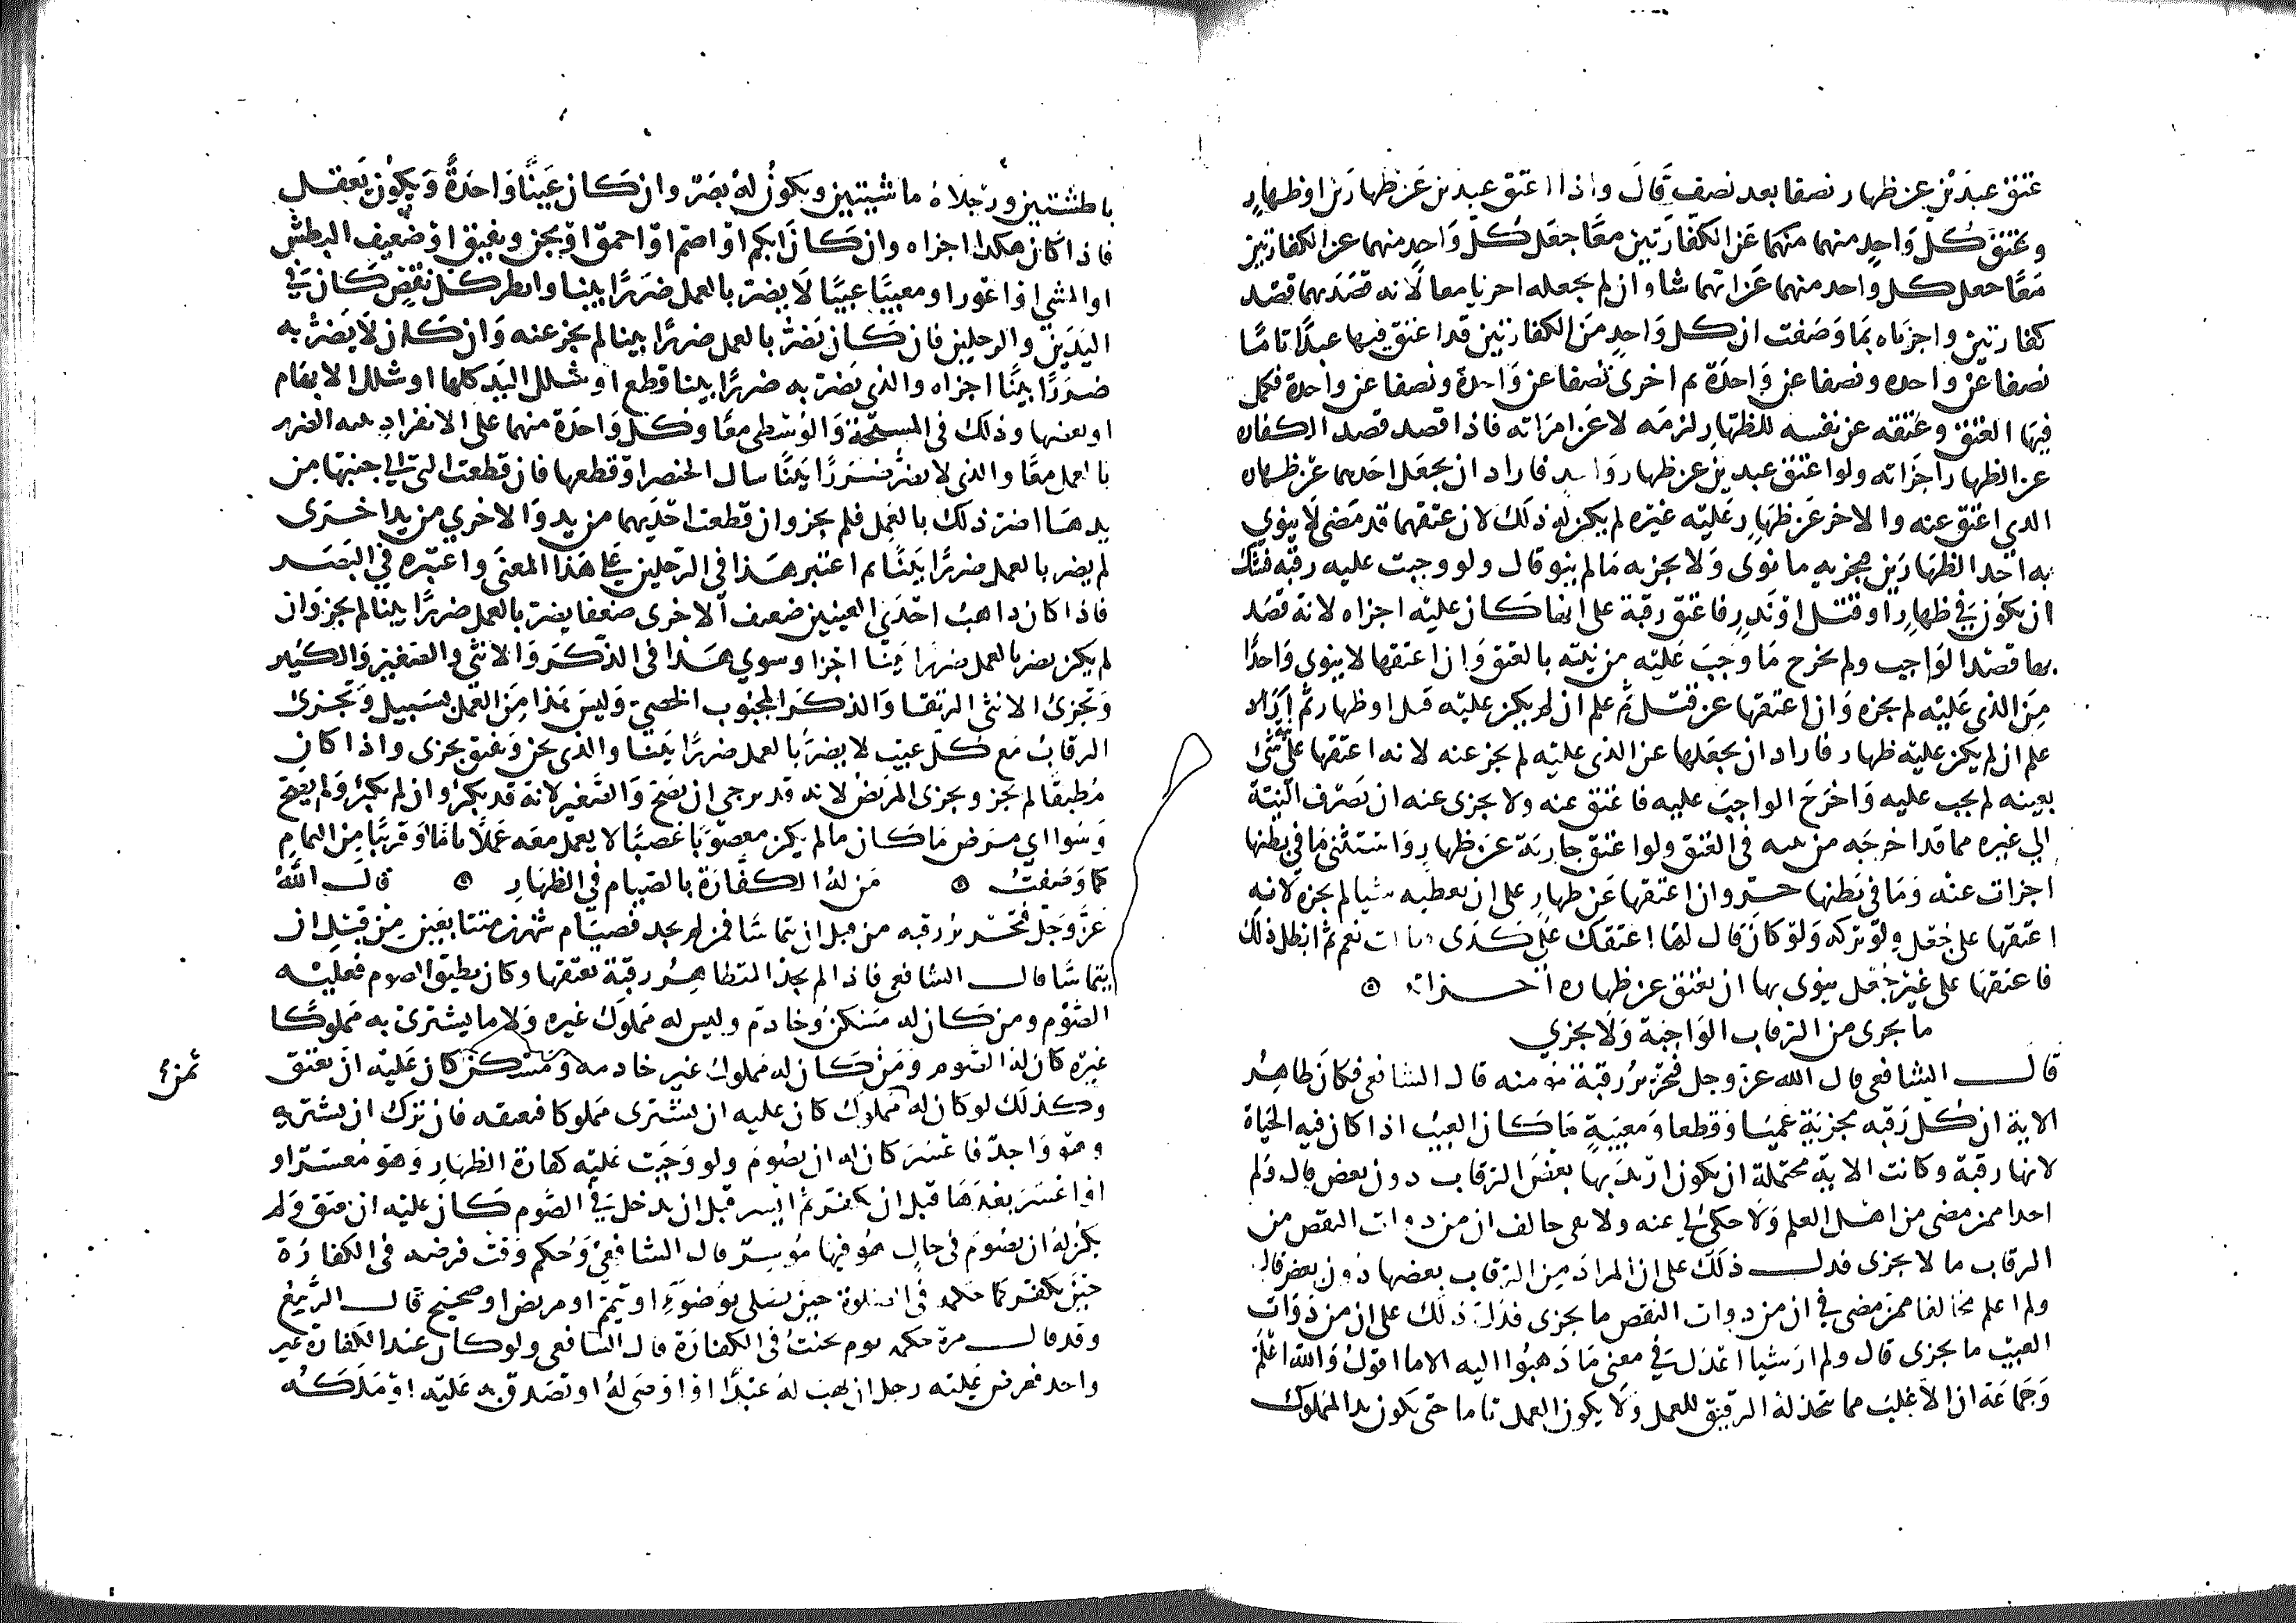 عتق عبدين عن ظهار نصفا بعد نصف قال واذا اعتق عبدين عن ظهارين او ظهار
وعتق كل واحد منهما منهما عن الكفارتين معا جعل كل واحد منهما عن الكفارتين
معا جعل كل واحد منهما عن ايتهما شا وان لم يجعله اجزيا معا لانه قصد بهما قصد
كفارتين واجزياه بما وصفت ان كل واحد من الكفارتين قد اعتق فيها عبدا تاما
نصفا عن واحده ونصفا عن واحدة ثم اخرى نصفا عن واحدة ونصفا عن واحدة فكمل
فيها العتق وعتقه عن نفسه للظهار لزمه لا عن امراته فاذا قصد قصد الكفاره
عن الظهار اجزاته ولو اعتق عبدين عن ظهار واحد فاراد ان يجعل احدهما عن ظهاره
الذي اعتق عنه والاخر عن ظهار عليه غيره لم يكن له ذلك لان عتقهما قد مضى لا ينوي
به احد الظهارين فيجزيه ما نوى ولا يجزيه ما لم ينو قال ولو وجبت عليه رقبه فشك
ان تكون في ظهار او قتل او نذر فاعتق رقبة على انها كان عليه اجزاه لانه قصد
بها قصد الواجب ولم يخرج ما وجب عليه من نيته بالعتق وان اعتقها لا ينوي واحدا
من الذي عليه لم يجزه وان اعتقها عن قتل ثم علم ان لم يكن عليه قتل او ظهار ثم
علم ان لم يكن عليه ظهار فاراد ان يجعلها عن الذي عليه لم يجز عنه لانه اعتقها على شى
بعينه لم يجب عليه واخرج الواجب عليه فاعتق عنه ولا يجزى عنه ان يصرف النية
الى غيره مما قد اخرجه من نيته في العتق ولو اعتق جارية عن ظهار واستثنى ما في بطنها
اجزات عنه وما في بطنها حر وان اعتقها عن ظهار على ان تعطيه شيا لم يجزه لانه
اعتقها على جعل ولو تركه ولو كان قال لها اعتقك على كذى وقالت نعم ثم ابطل ذلك
فاعتقها على غير جعل ينوى بها ان تعتق عن ظهاره اجزاته
ما يجزى من الرقاب الواجبة ولا يجزي
قال الشافعي قال الله عز وجل فتحرير رقبة مومنه قال الشافعي فكان ظاهر
الاية ان كل رقبه مجزية عميا وقطعا ومعيبة ما كان العيب اذا كان فيه الحياة
لانها رقبة وكانت الاية محتملة ان يكون اريد بها بعض الرقاب دون بعض قال ولم
احدا ممن مضى من اهل العلم ولا حكي لي عنه ولا بقي خالف ان من ذوات النقص من
الرقاب ما لا يجزى فدل ذلك على ان المراد من الرقاب بعضها دون بعض قال
ولم اعلم مخالفا ممن مضى في ان من ذوات النقص ما يجزى فدل ذلك على ان من ذوات
العيب ما يجزى قال ولم ار شيا اعدل في معنى ما ذهبوا اليه الا ما اقول والله اعلم
وجماعة ان الاغلب مما يتخذ له الرقيق للعمل ولا يكون العمل تاما حتى يكون يدا المملوك
باطشتين ورجلاه ماشيتين ويكون له بصر وان كان عينا واحدة ويكون يعقل
فاذا كان هكذا اجزاه وان كان ابكم او اصم او احمق او يجن ويفيق او ضعيف البطش
او المشي او اعور او معيبا عيبا لا يضر بالعمل ضررا بينا وانظر كل نقص كان في
اليدين والرجلين فان كان يضر بالعمل ضررا بينا لم يجز عنه وان كان لا يضر به
ضررا بينا اجزاه والذي يضر به ضررا بينا قطع او شلل اليد كلها او شلل الابهام
او بعضها وذلك في المسبحة والوسطى معا وكل واحدة منهما على الانفراد
بالعمل معا والذي لا يضر ضررا بينا شلل الخنصر او قطعها فان قطعت التي الى جنبها من
يدها اضر ذلك بالعمل فلم يجز وان قطعت احديهما من يد والاخري من يد اخرى
لم يضر بالعمل ضررا بينا ثم اعتبر هذا في الرجلين على هذا المعنى واعتبره في البصر
فاذا كان ذاهب احدي العينين ضعيف الاخرى ضعفا يضر بالعمل ضررا بينا لم يجز وان
لم يكن يضر بالعمل ضررا بينا اجزا وسوي هذا في الذكر والانثى والصغير والكبير
وتجزئ الانثى الرتقا والذكر المجبوب الخصي وليس هذا من العمل بسبيل وتجزئ
الرقاب مع كل عيب لا يضر بالعمل ضررا بينا والذي يجن ويفيق يجزى واذا كان
مطبقا لم يجز ويجزى المريض لانه قد يرجى ان يصح والصغير لانه قد يكبر وان لم يكبر ولم يصح
وسوا اي مرض ما كان ما لم يكن معضوبا عضبا لا يعمل معه عملا تاما او قريبا من التمام
كما وصفت من له الكفارة بالصيام في الظهار قال الله
عز وجل فتحرير رقبه من قبل ان يتماسا فمن لم يجد فصيام شهرين متتابعين من قبل ان
يتماسا قال الشافعي فاذا لم يجد المتظاهر رقبة يعتقها وكان يطيق الصوم فعليه
الصوم ومن كان له مسكن وخادم وليس له مملوك غيره ولا ما يشترى به مملوكا
غيره كان له الصوم ومن كان له مملوك غير خادمه ومسكن كان عليه ان يعتق
وكذلك لو كان له مملوك كان عليه ان يشترى مملوكا فيعتقه فان ترك ان يشتريه
ثمن
وهو واجد فاعسر كان له ان يصوم ولو وجبت عليه كفارة الظهار وهو معسر او
اذا اعسر بعدها قبل ان يكفر ثم ايسر قبل ان يدخل في الصوم كان عليه ان يعتق ولم
يكن له ان يصوم في حال هو فيها موسر قال الشافعي وحكم وقت فرضه في الكفارة
حين يكفر كما حكمه في الصلوة حين يصلى بوضوء او تيمم او مريض او صحيح قال الربيع
وقد قال مرة حكمه يوم يحنث في الكفارة قال الشافعي ولو كان عند الكفارة غير
واحد فعرض عليه رجل ان يهب له عبدا او اوصى له او تصدق به عليه او ملكه